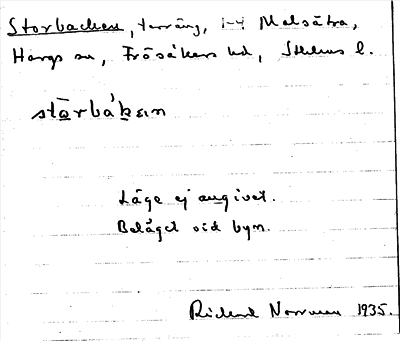 Storbacken, terräng, 1-4 Malsätra,
Hargs sn, Frösåkers hd, Sthlms l.
stɷ̄rbákɛ̀n
Läge ej angivet.
Beläget vid byn.
Rickard Norrman 1935.